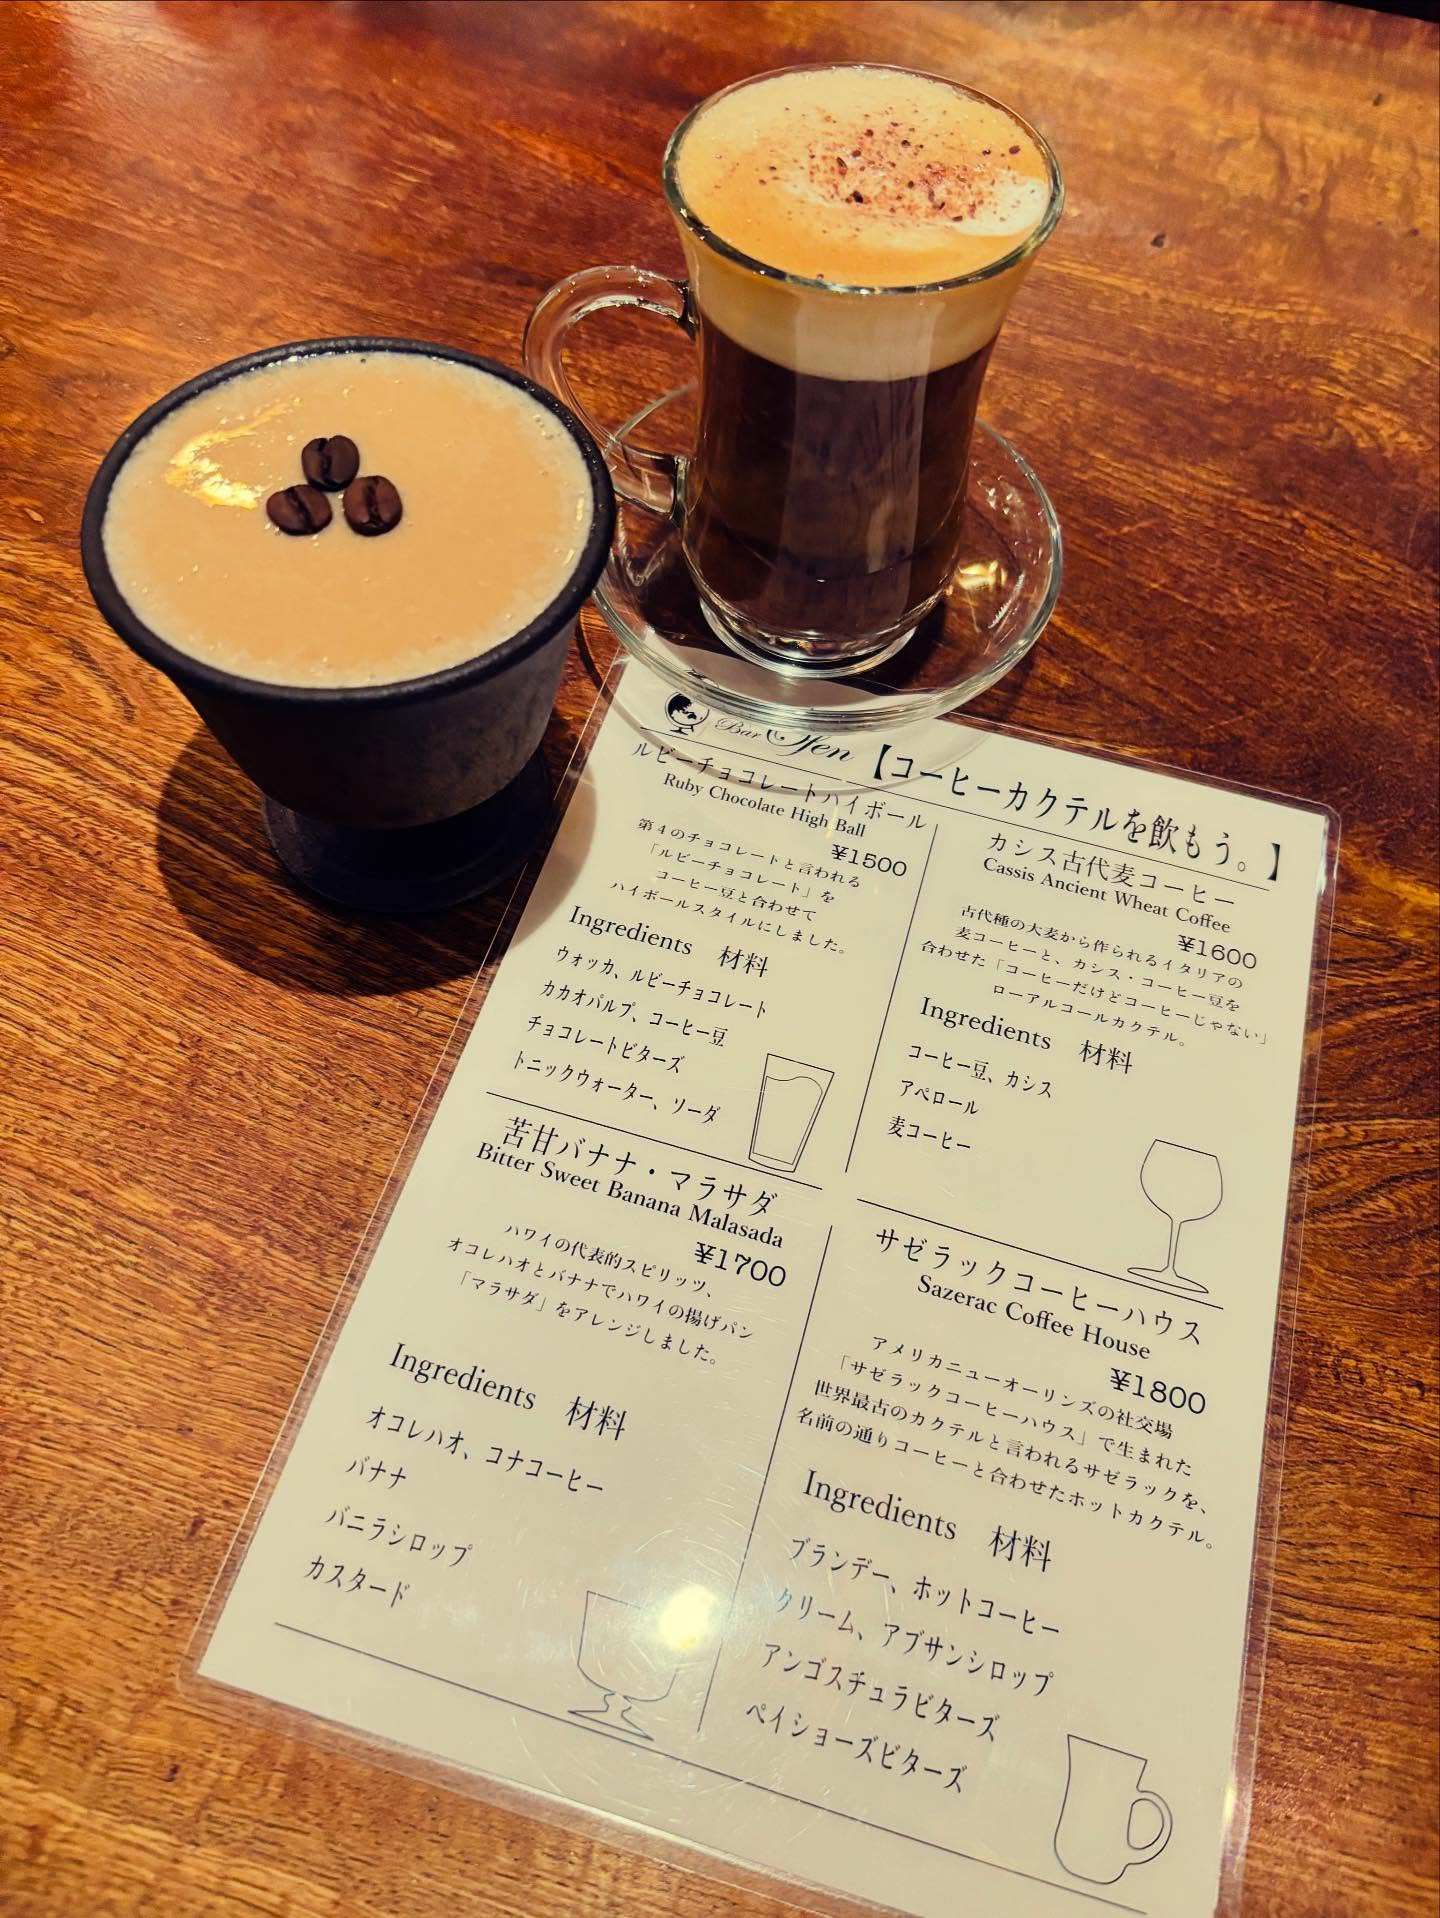 Bar
【コーヒーカクテルを飲もう。】
ルビーチョコレートハイボール
Ruby Chocolate High Ball
¥1500
第4のチョコレートと言われる
「ルビーチョコレート」を
コーヒー豆と合わせて
ハイボールスタイルにしました。
Ingredients 材料
ウォッカ、ルビーチョコレート
カカオパルプ、コーヒー豆
チョコレートビターズ
トニックウォーター、ソーダ
カシス古代麦コーヒー
Cassis Ancient Wheat Coffee
¥1600
古代種の大麦から作られるイタリアの
麦コーヒーと、カシス・コーヒー豆を
合わせた「コーヒーだけどコーヒーじゃない」
ローアルコールカクテル。
Ingredients 材料
コーヒー豆、カシス
アペロール
麦コーヒー
苦甘バナナ・マラサダ
Bitter Sweet Banana Malasada
¥1700
ハワイの代表的スピリッツ、
オコレハオとバナナでハワイの揚げパン
「マラサダ」をアレンジしました。
Ingredients 材料
オコレハオ、コナコーヒー
バナナ
バニラシロップ
カスタード
サゼラックコーヒーハウス
Sazerac Coffee House
¥1800
アメリカニューオーリンズの社交場
「サゼラックコーヒーハウス」で生まれた
世界最古のカクテルと言われるサゼラックを、
名前の通りコーヒーと合わせたホットカクテル。
Ingredients 材料
ブランデー、ホットコーヒー
クリーム、アブサンシロップ
アンゴスチュラビターズ
ペイショーズビターズ